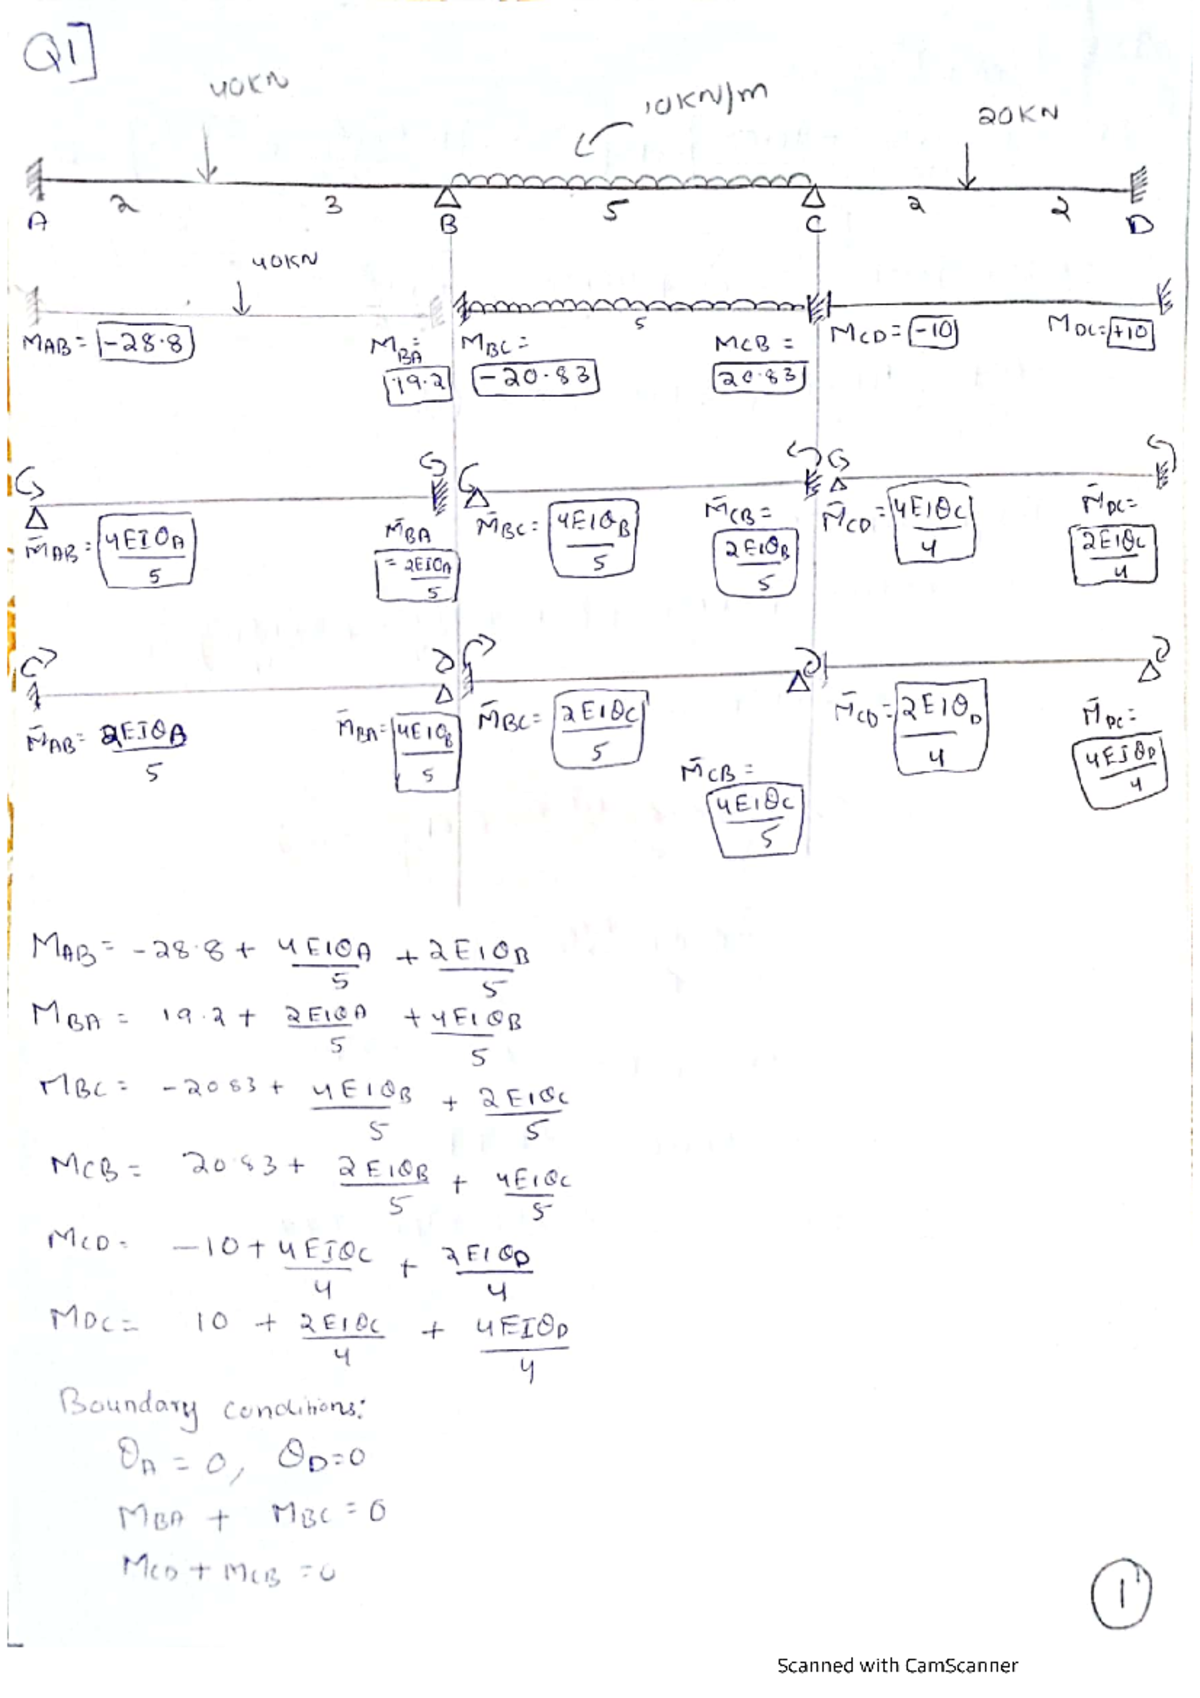 Q1]
40KN
10KN/m
20KN
2 3 5 2 2
A B C D
40KN
5
MAB = -28.8 MBA = 19.2 MBC = -20.83 MCB = 20.83 MCD = -10 MDC = +10
M̄AB = 4EIθA/5 M̄BA = 2EIθA/5 M̄BC = 4EIθB/5 M̄CB = 2EIθB/5 M̄CD = 4EIθC/4 M̄DC = 2EIθC/4
M̄AB = 2EIθB/5 M̄BA = 4EIθB/5 M̄BC = 2EIθC/5 M̄CB = 4EIθC/5 M̄CD = 2EIθD/4 M̄DC = 4EIθD/4
MAB = -28.8 + 4EIθA/5 + 2EIθB/5
MBA = 19.2 + 2EIθA/5 + 4EIθB/5
MBC = -20.83 + 4EIθB/5 + 2EIθC/5
MCB = 20.83 + 2EIθB/5 + 4EIθC/5
MCD = -10 + 4EIθC/4 + 2EIθD/4
MDC = 10 + 2EIθC/4 + 4EIθD/4
Boundary conditions:
θA = 0, θD = 0
MBA + MBC = 0
MCD + MCB = 0
1
Scanned with CamScanner